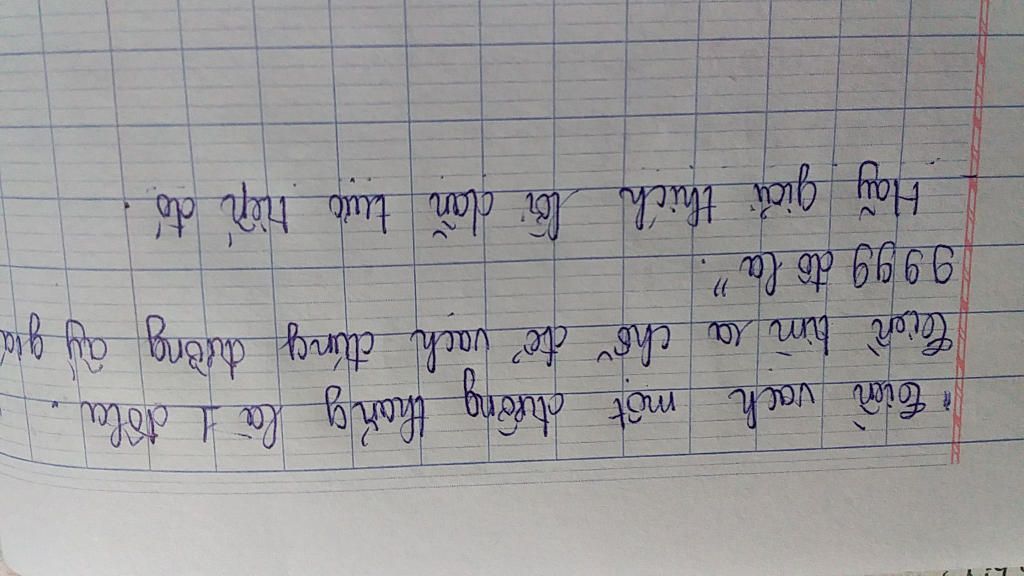 "Tiền vạch một đường thẳng là 1 đôla.
Tiền tìm ra chỗ để vạch đúng đường ấy giá
9999 đô la".
Hãy giải thích lời dẫn trực tiếp đó.